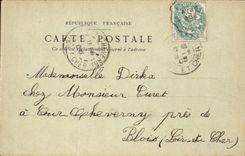 RÉPUBLIQUE FRANÇAISE
CARTE POSTALE
Ce côté est exclusivement réservé à l'adresse
Mademoiselle Dirka
chez Monsieur Turet
à Cour Cheverny près de
Blois (Loir et Cher)